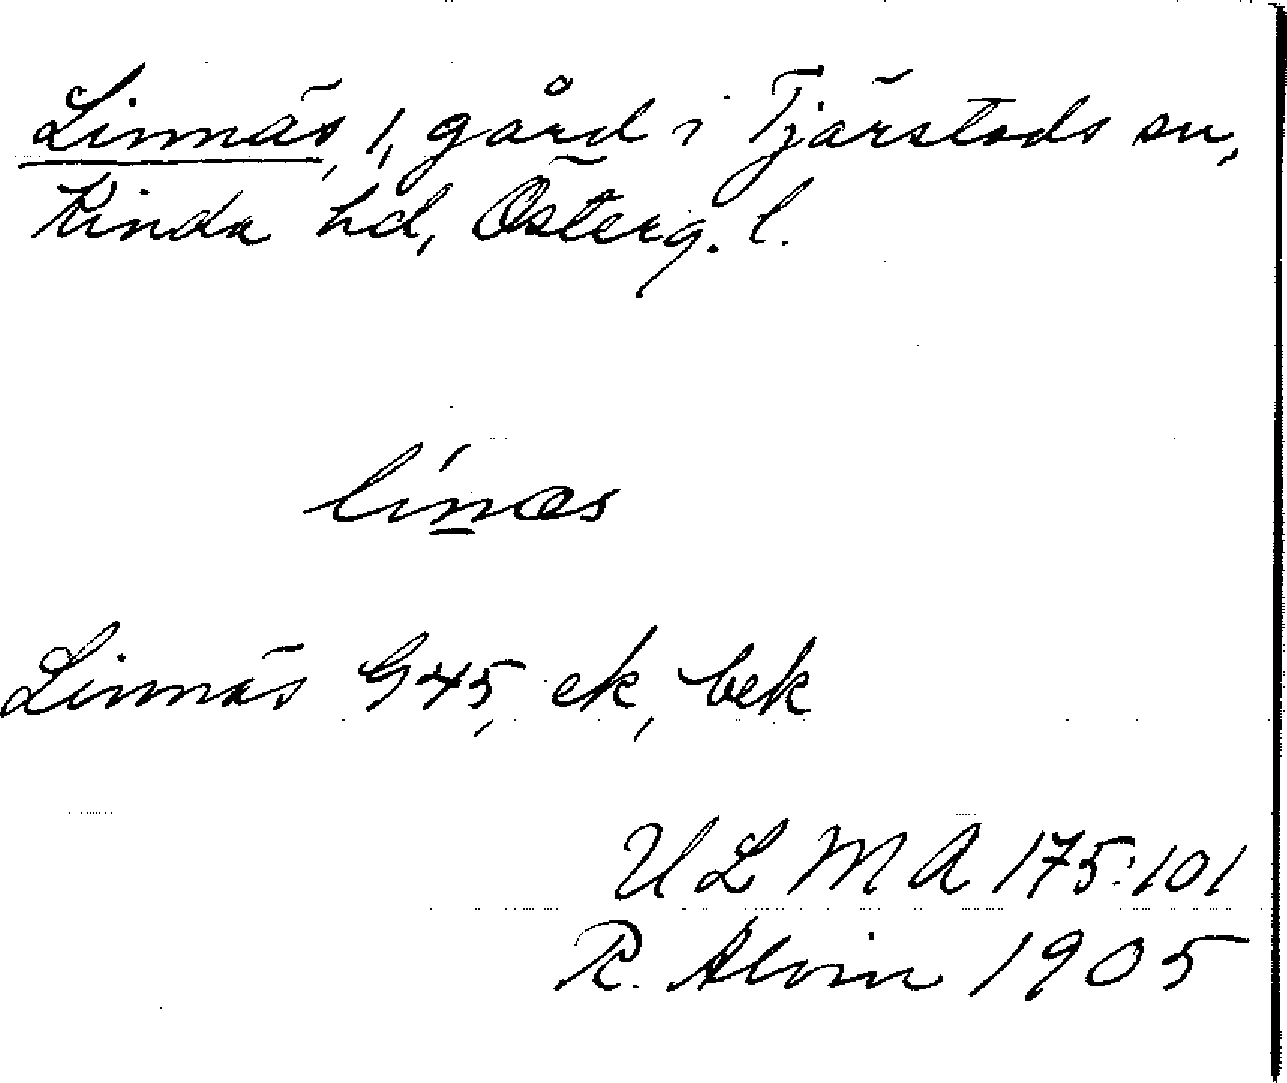 Linnäs, 1, gård i Tjärstads sn,
Kinda hd, Österg. l.
línæs
Linnäs G45, ek, bek
ULMA 175:101
R. Alvin 1905